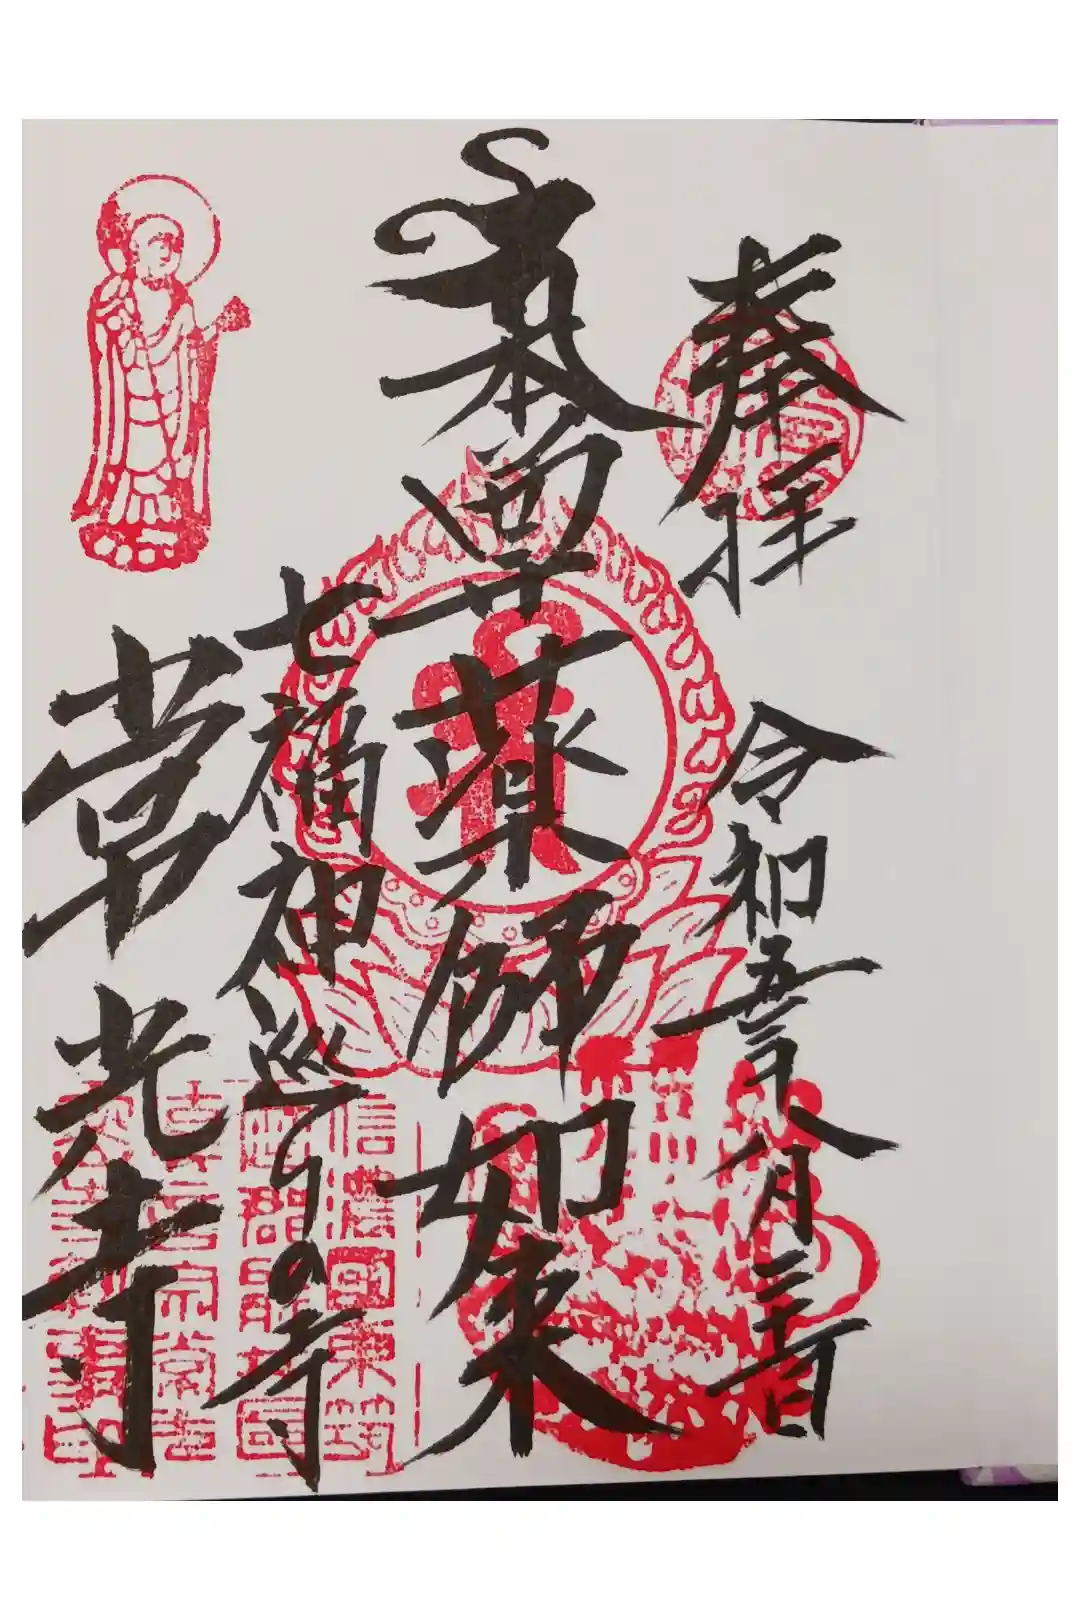 奉拝 令和五年八月
本尊薬師如来
七福神巡りの寺
常光寺
信濃國東筑